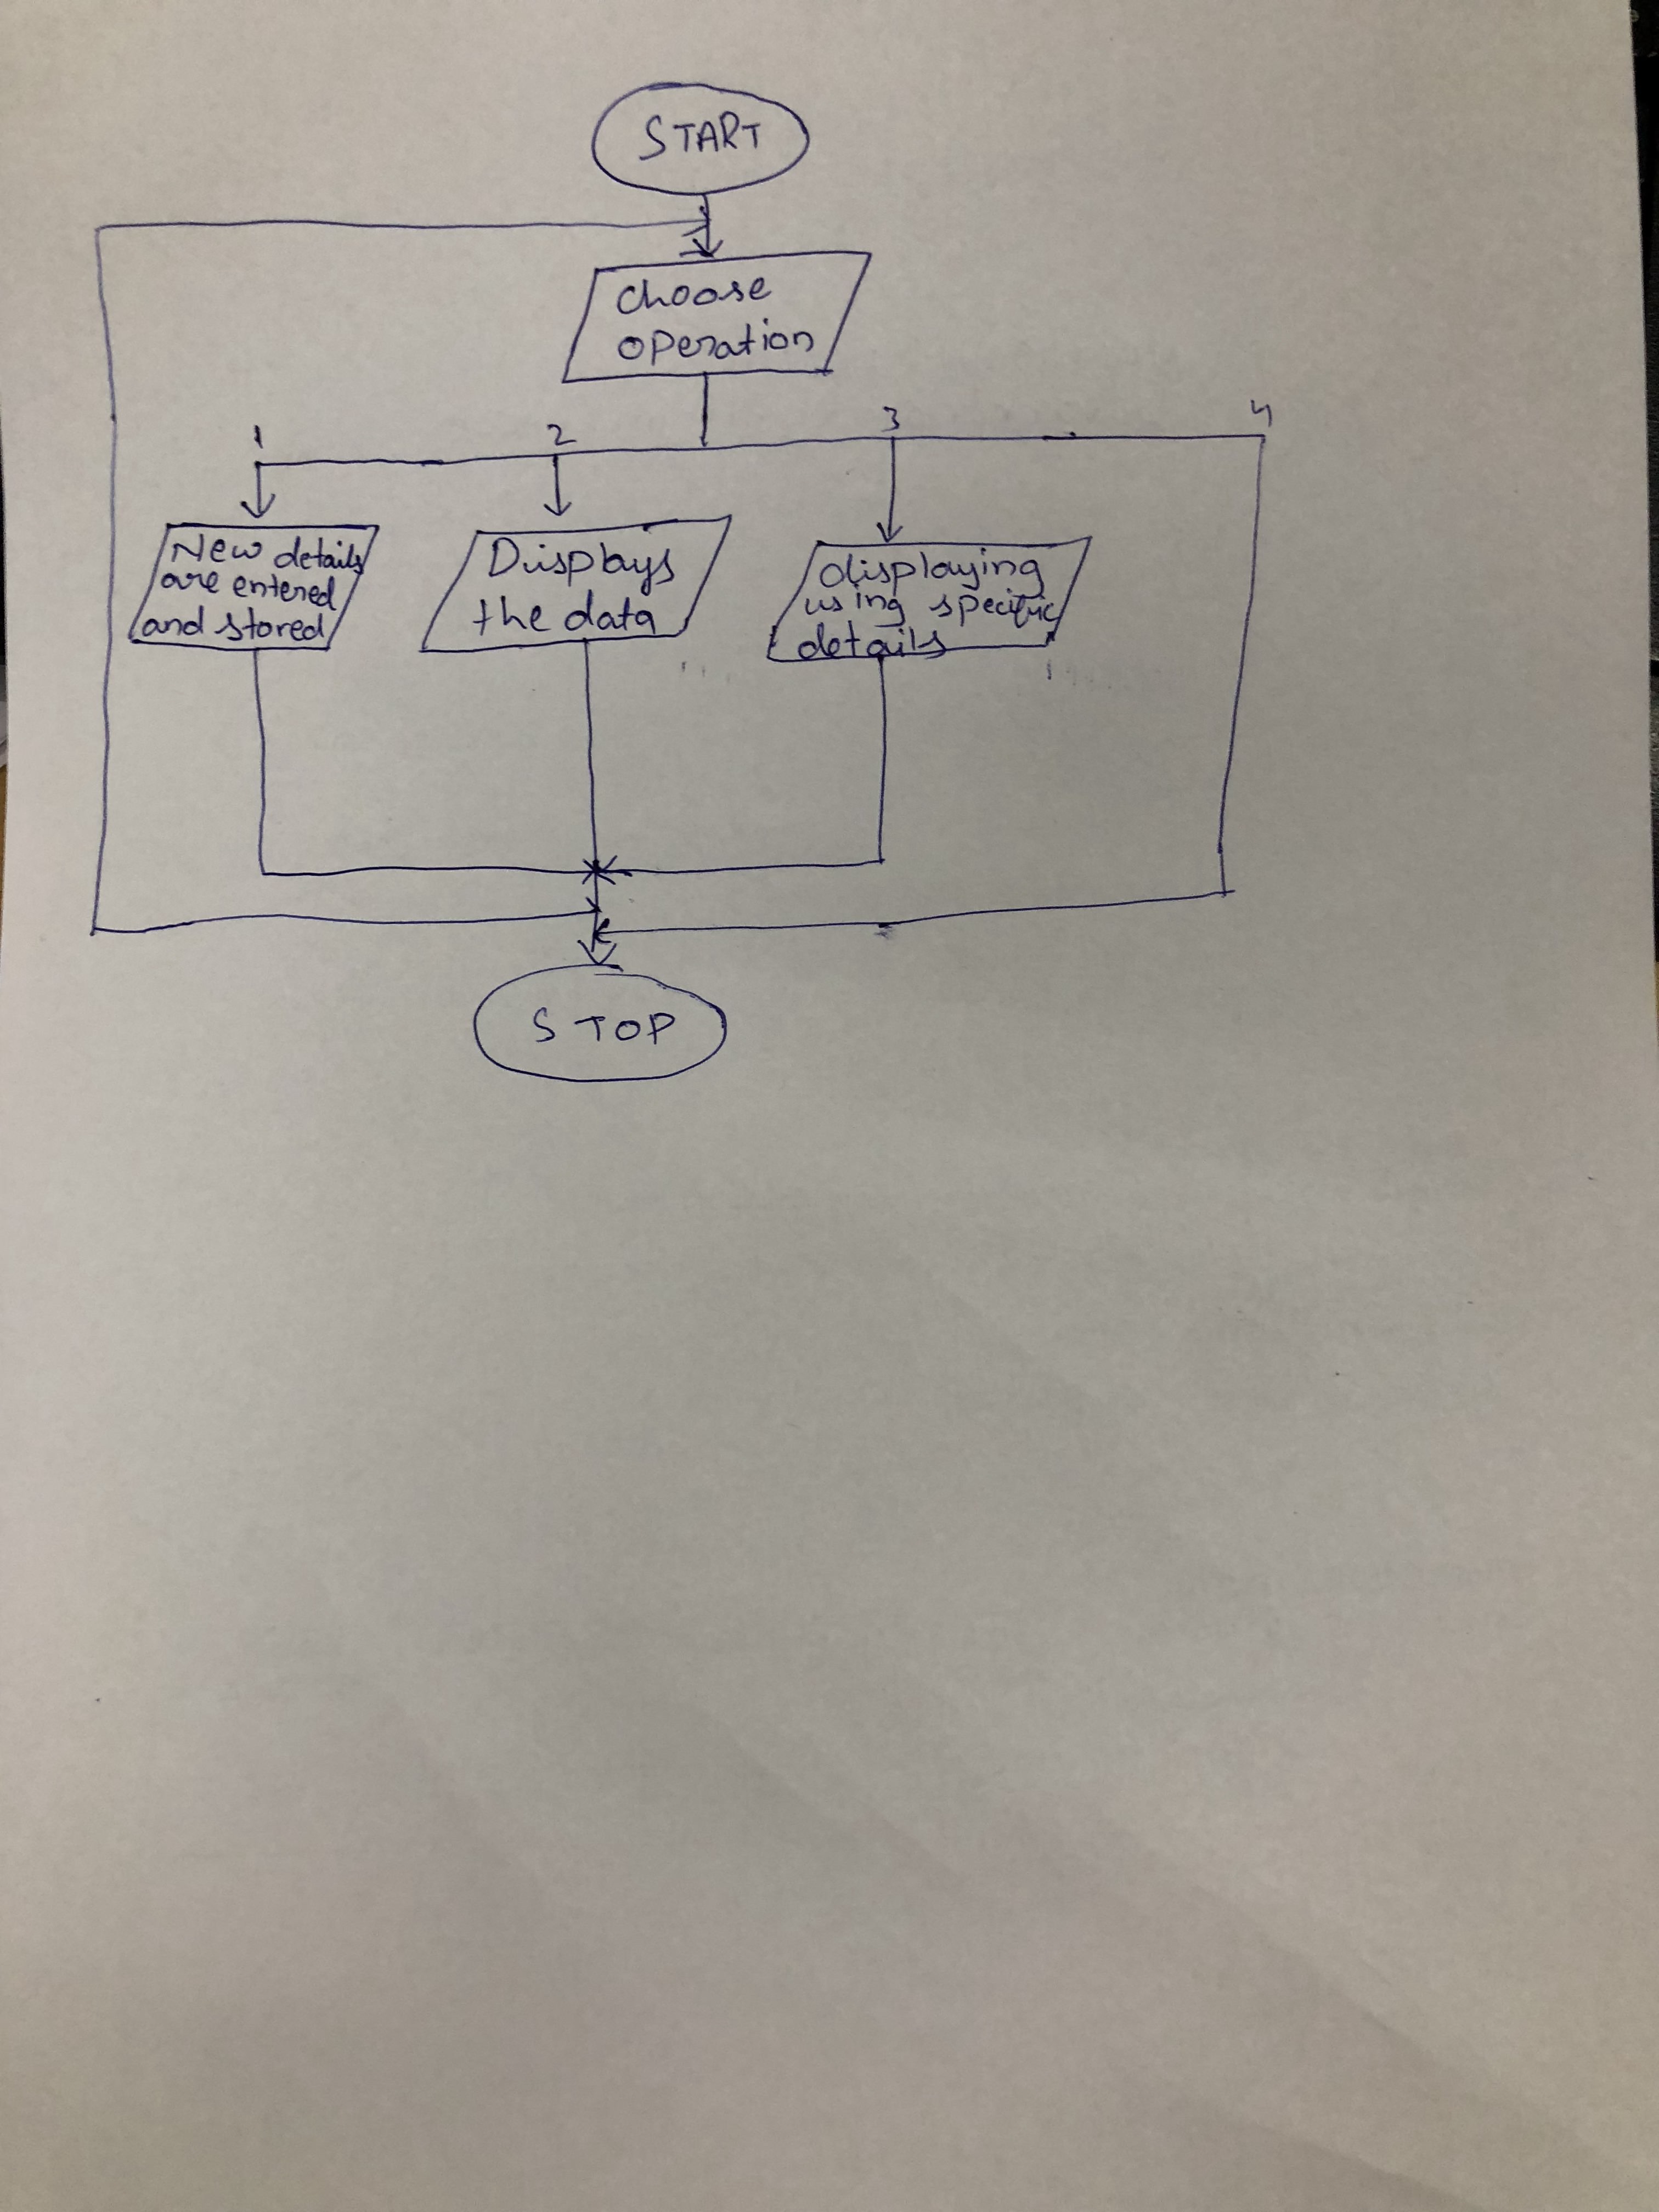 START
choose
operation
1
2
3
4
New details
are entered
and stored
Displays
the data
displaying
using specific
details
STOP